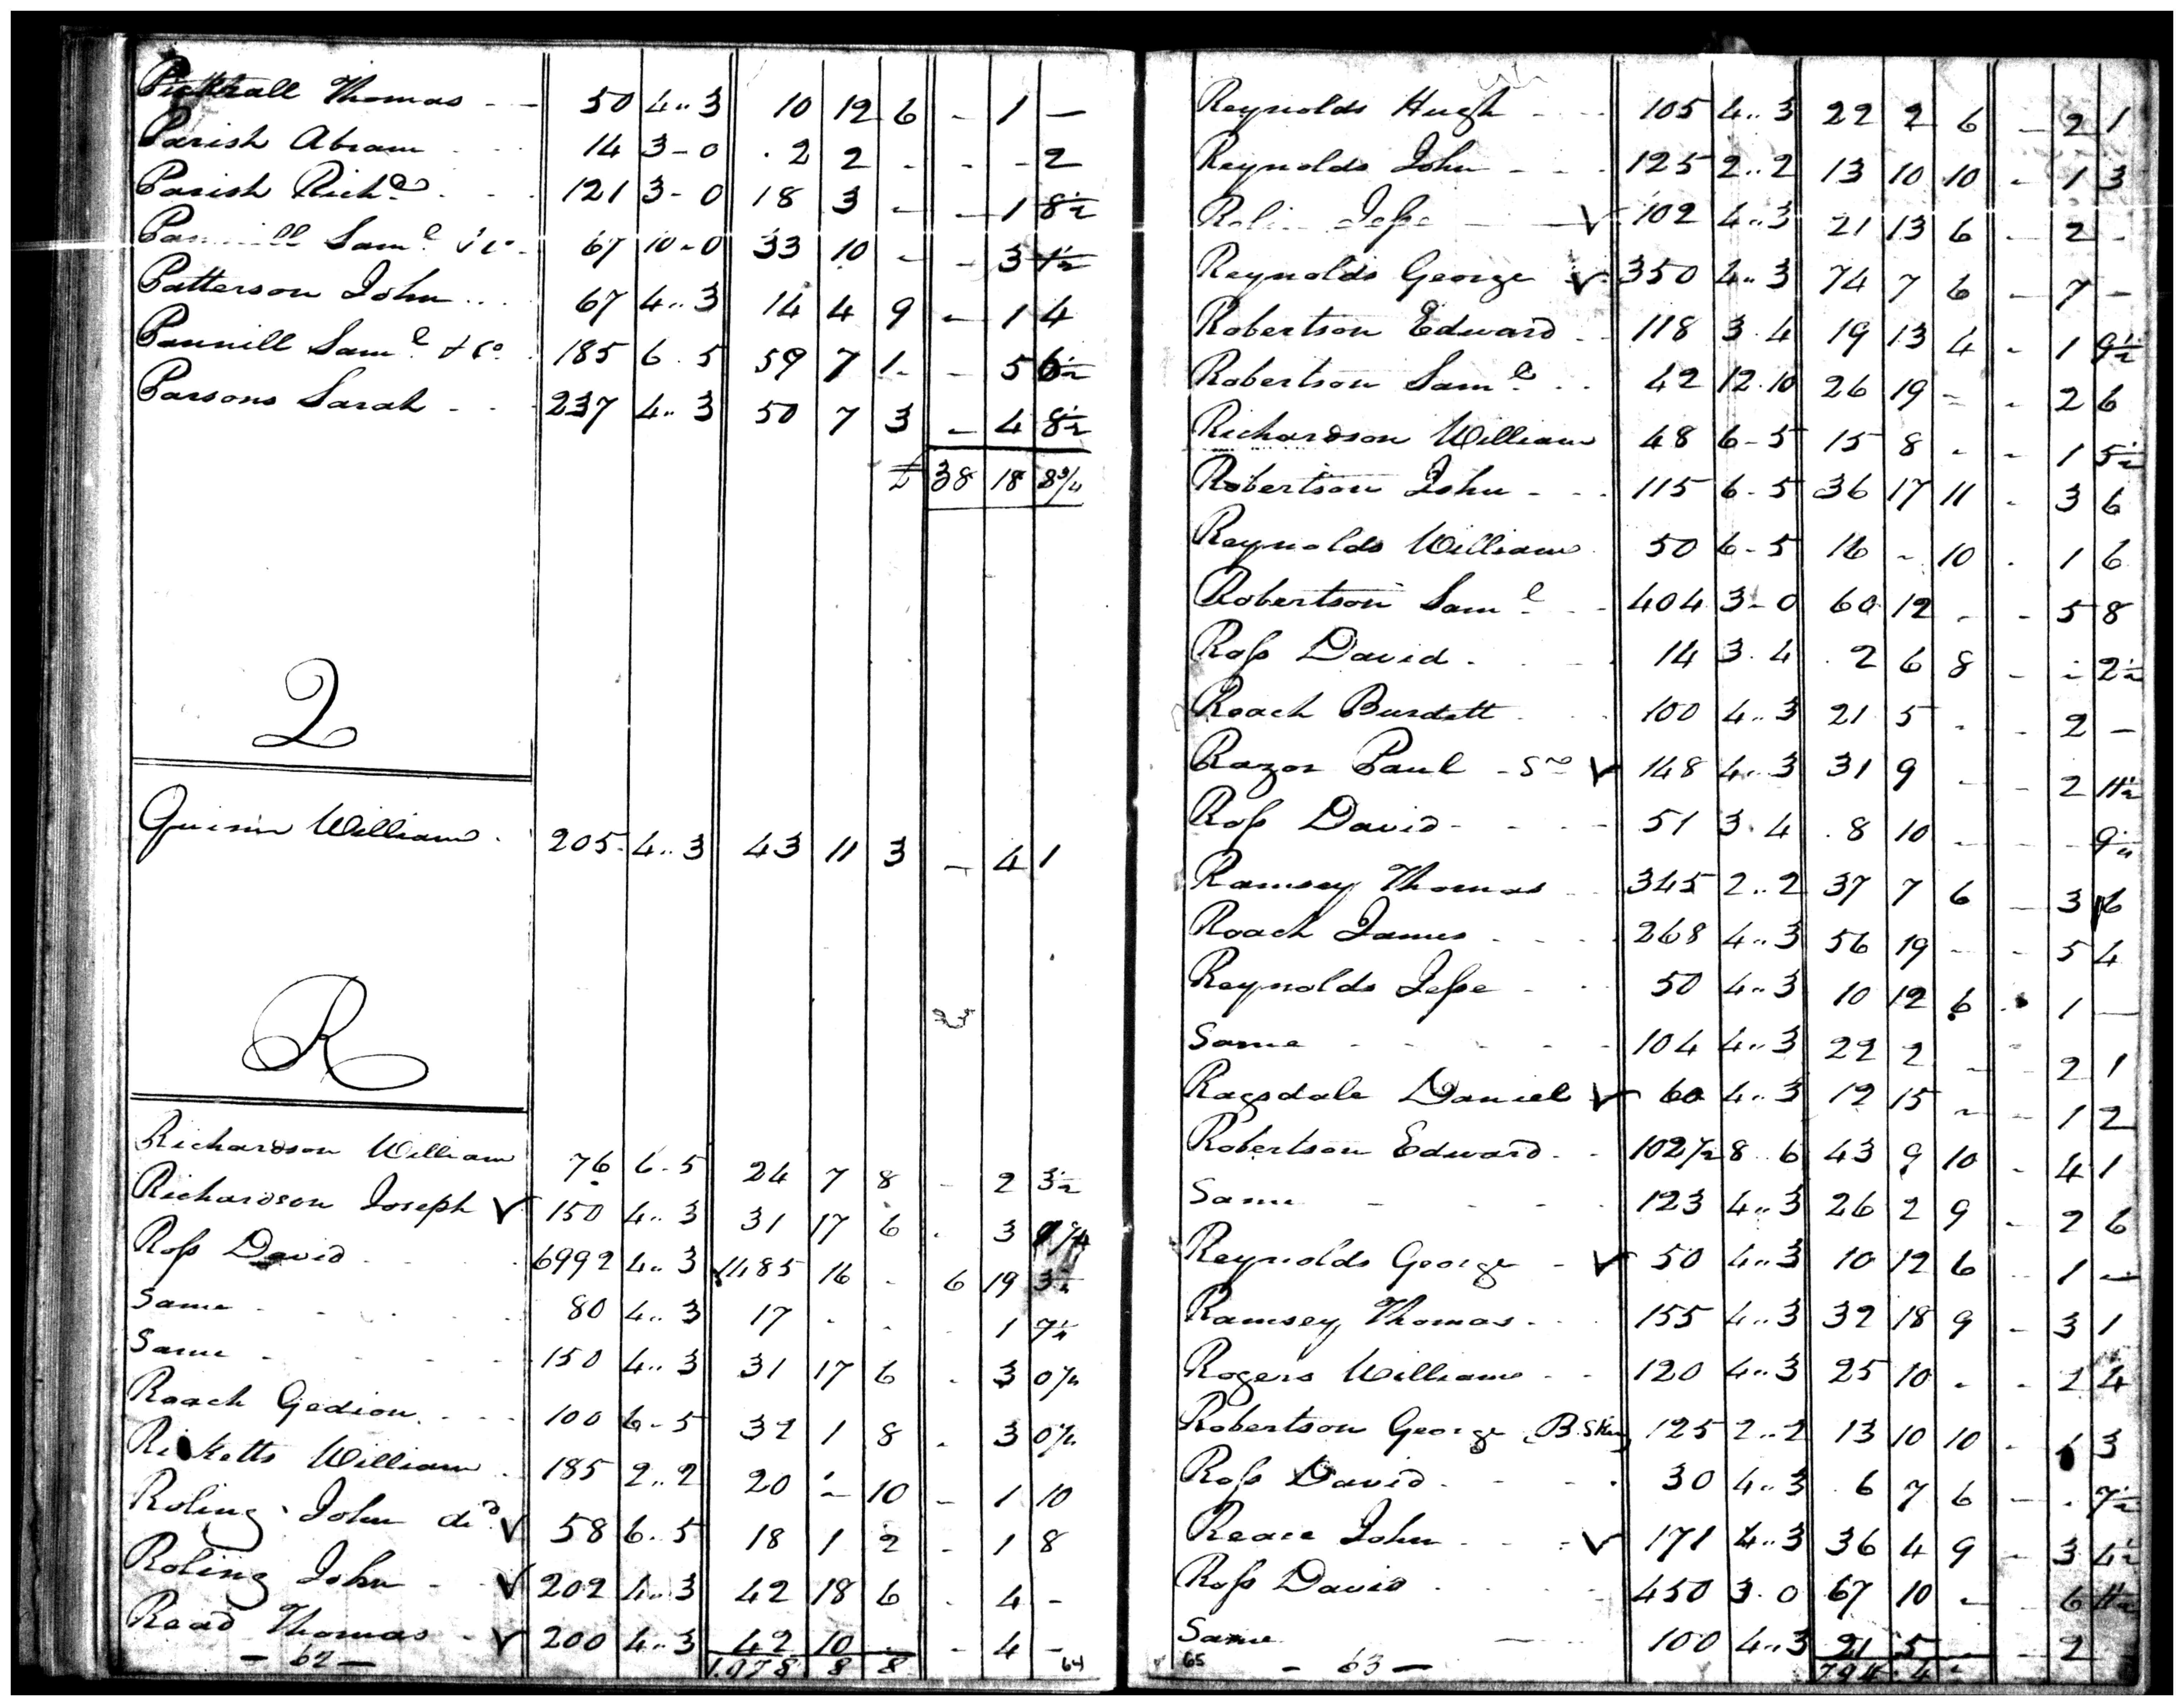 Pickrall Thomas - - 50 4..3 10 12 6 - 1 -
Parish Abram 14 3-0 2 2 - - - 2
Parish Richd 121 3-0 18 3 - - 1 8½
Saml & Co 67 10-0 33 10 - - 3 1½
Patterson John 67 4..3 14 4 9 - 1 4
Pannill Saml & Co 185 6.5 59 7 1 - 5 6½
Parsons Sarah - - 237 4..3 50 7 3 - 4 8½
£ 38 18 8¾
Q
Quinn William 205 4..3 43 11 3 - 4 1
R
Richardson William 76 6.5 24 7 8 - 2 3½
Richardson Joseph ✓ 150 4..3 31 17 6 - 3
Ross David 6992 4..3 1485 16 - 6 19 3½
Same 80 4..3 17 - - - 1 7½
Same 150 4..3 31 17 6 - 3 0½
Roach Gedion 100 6-5 32 1 8 - 3 0½
Ricketts William 185 2..2 20 - 10 - 1 10
Roling John ✓ 58 6.5 18 1 2 - 1 8
Roling John ✓ 202 4..3 42 18 6 - 4 -
Read Thomas ✓ 200 4..3 42 10 - - 4 -
- 62 - 8 8 64
Reynolds Hugh 105 4..3 22 2 6 - 2 1
Reynolds John 125 2..2 13 10 10 - 1 3
Jesse ✓ 102 4..3 21 13 6 - 2 -
Reynolds George ✓ 350 4..3 74 7 6 - 7 -
Robertson Edward 118 3.4 19 13 4 - 1 9½
Robertson Saml 42 12.10 26 19 - - 2 6
Richardson William 48 6-5 15 8 - - 1 5½
Robertson John 115 6-5 36 17 11 - 3 6
Reynolds William 50 6-5 16 - 10 - 1 6
Robertson Saml 404 3-0 60 12 - - 5 8
Ross David 14 3.4 2 6 8 - - 2½
Roach Burdett 100 4..3 21 5 - - 2 -
Razor Paul - Snr ✓ 148 4..3 31 9 - - 2 11½
Ross David 51 3.4 8 10 - - -
Ramsey Thomas 345 2..2 37 7 6 - 3 6
Roach James 268 4..3 56 19 - - 5 4
Reynolds Jesse 50 4..3 10 12 6 - 1 -
Same 104 4..3 22 2 - - 2 1
Ragsdale Daniel ✓ 60 4..3 12 15 - - 1 2
Robertson Edward 102½ 8..6 43 9 10 - 4 1
Same 123 4..3 26 2 9 - 2 6
Reynolds George ✓ 50 4..3 10 12 6 - 1 -
Ramsey Thomas 155 4..3 32 18 9 - 3 1
Rogers William 120 4..3 25 10 - - 2 4
Robertson George 125 2..2 13 10 10 - 1 3
Ross David 30 4..3 6 7 6 - - 7½
Reace John ✓ 171 4..3 36 4 9 - 3 4½
Ross David 450 3.0 67 10 - - 6 11½
Same 100 4..3 21 5 - - 2
65 - 63 -